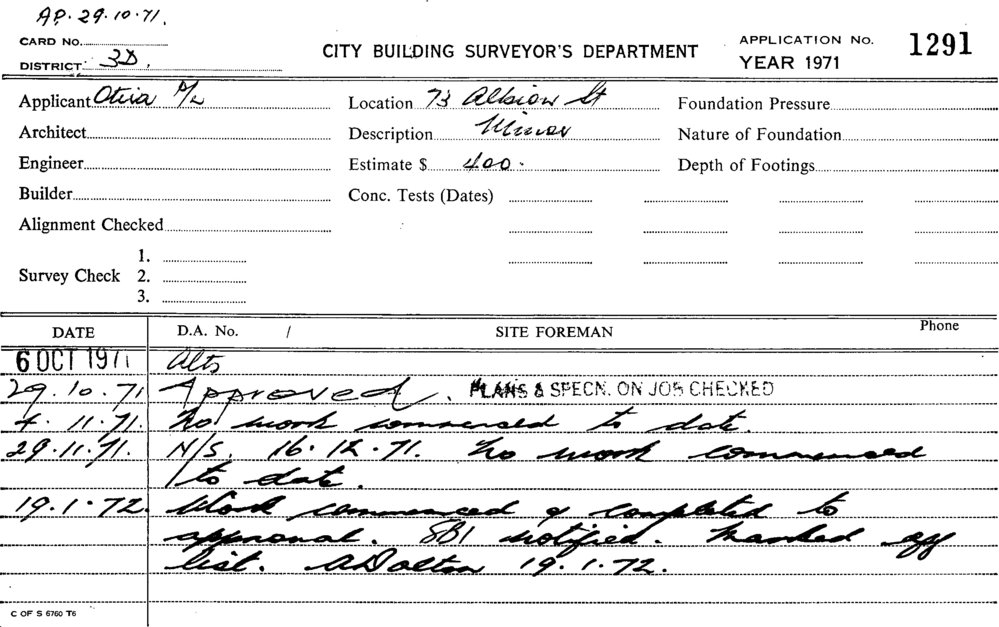 AP. 29.10.71.
CARD NO.
DISTRICT: 3D.
CITY BUILDING SURVEYOR'S DEPARTMENT
APPLICATION No. 1291
YEAR 1971
Applicant Otira P/L
Location 73 Albion St
Foundation Pressure
Architect
Description Minor
Nature of Foundation
Engineer
Estimate $ 400.
Depth of Footings
Builder
Conc. Tests (Dates)
Alignment Checked
Survey Check 1.
2.
3.
DATE D.A. No. / SITE FOREMAN Phone
6 OCT 1971 Alts
29.10.71 Approved. PLANS & SPECN. ON JOB CHECKED
4.11.71. No work commenced to date.
29.11.71. N/S. 16.12.71. No work commenced
to date.
19.1.72. Work commenced & completed to
approval. SBI notified. Marked off
list. ADalton 19.1.72.
C OF S 6760 T6